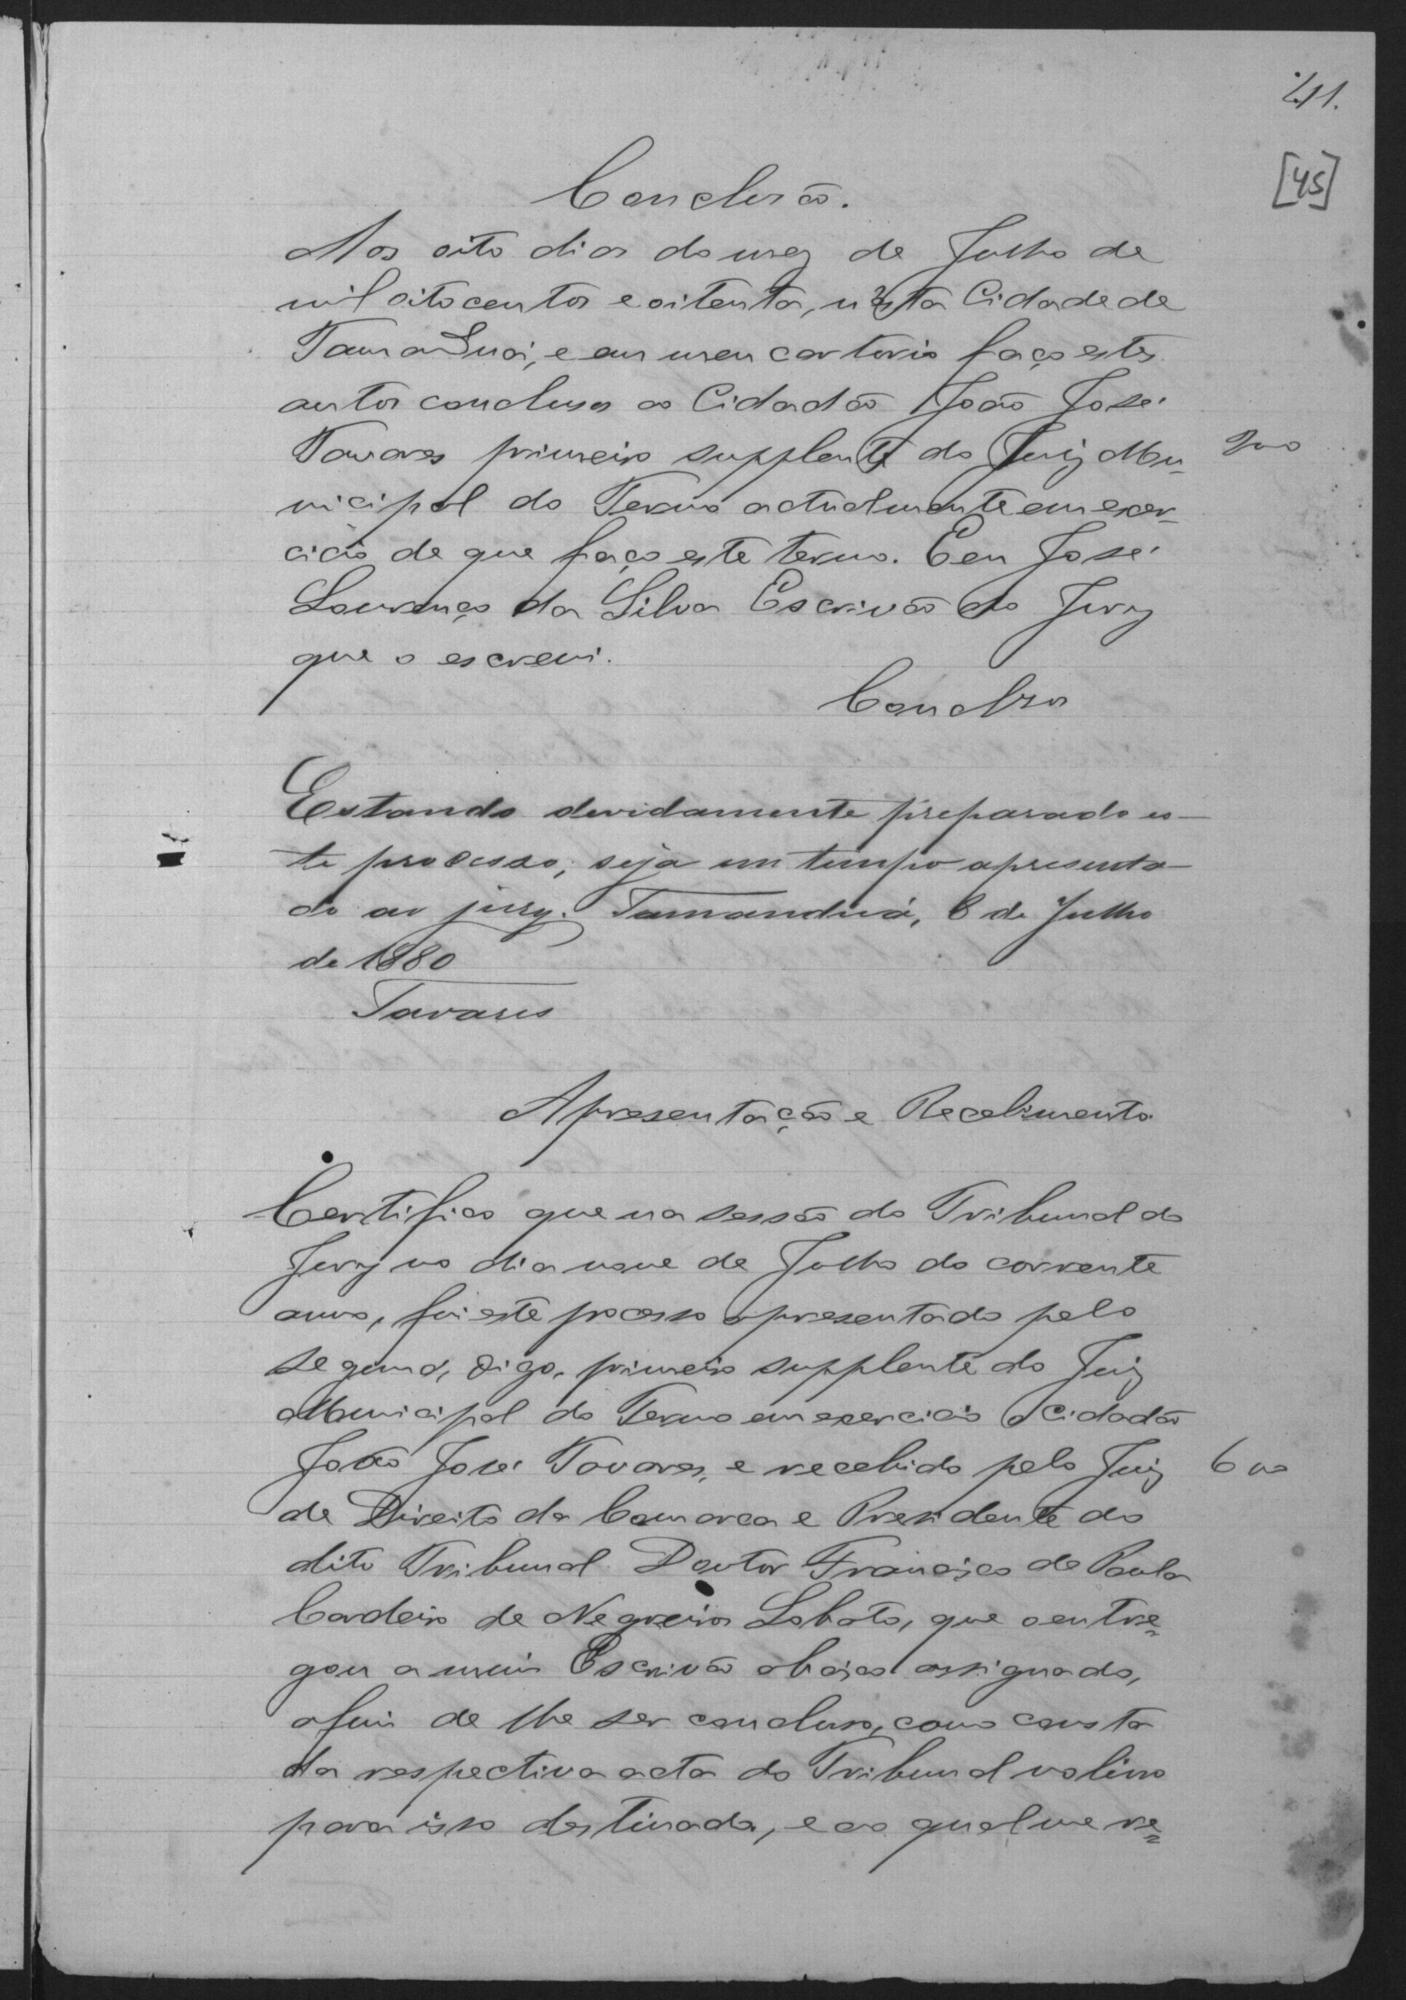 41.
[45]
Conclusão.
Aos oito dias do mez de Julho de
mil oitocentos e oitenta, n'esta Cidade de
Tamanduá, e em meu cartorio faço estes
autos conclusos ao Cidadão João José
Tavares primeiro supplente do Juiz Mu-
nicipal do Termo actualmente em exer-
cicio de que faço este termo. E eu José
Lourenço da Silva Escrivão do Jury
que o escrevi.
Conclsos
Estando devidamente preparado es-
te processo, seja em tempo apresenta-
do ao jury. Tamanduá, 8 de Julho
de 1880
Tavares
Apresentação e Recebimento
Certifico que na sessão do Tribunal do
Jury no dia nove de Julho do corrente
anno, foi este processo apresentado pelo
segund, digo, primeiro supplente do Juiz
Municipal do Termo em exercicio o cidadão
João José Tavares, e recebido pelo Juiz
de Direito da Comarca e Presidente do
dito Tribunal Doutor Francisco de Paula
Cordeiro de Negreiros Lobato, que o entre=
gou a mim Escrivão abaixo assignado,
afim de lhe ser concluso, como consta
da respectiva acta do Tribunal no livro
para isso destinado, e ao qual me re=